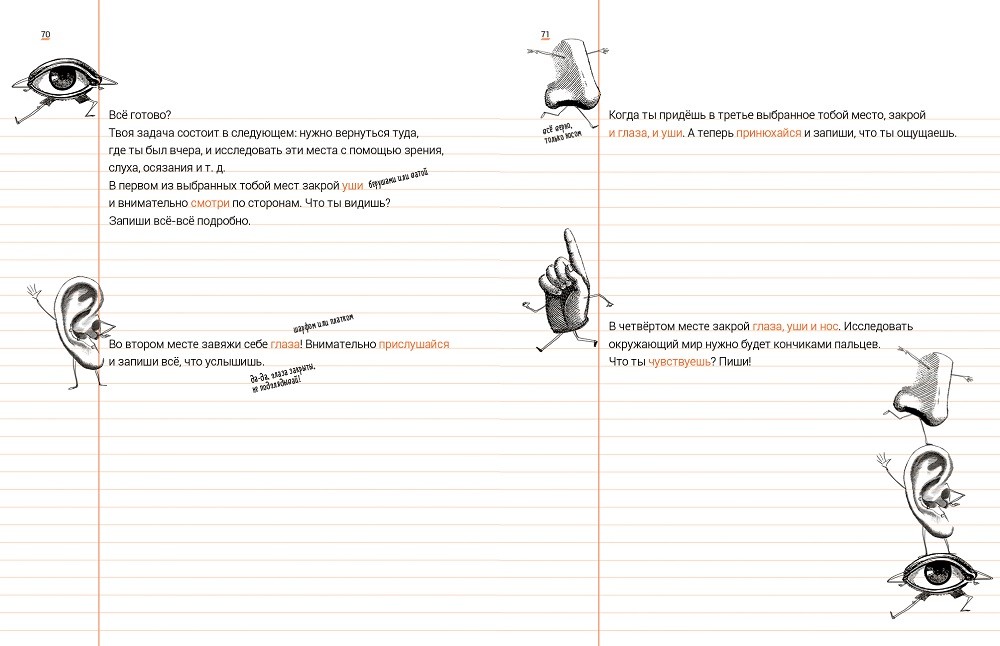 70
Всё готово?
Твоя задача состоит в следующем: нужно вернуться туда,
где ты был вчера, и исследовать эти места с помощью зрения,
слуха, осязания и т. д.
В первом из выбранных тобой мест закрой уши берушами или ватой
и внимательно смотри по сторонам. Что ты видишь?
Запиши всё-всё подробно.
шарфом или платком
Во втором месте завяжи себе глаза! Внимательно прислушайся
и запиши всё, что услышишь.
да-да, глаза закрыты,
не подглядывай!
71
всё верно,
только носом
Когда ты придёшь в третье выбранное тобой место, закрой
и глаза, и уши. А теперь принюхайся и запиши, что ты ощущаешь.
В четвёртом месте закрой глаза, уши и нос. Исследовать
окружающий мир нужно будет кончиками пальцев.
Что ты чувствуешь? Пиши!